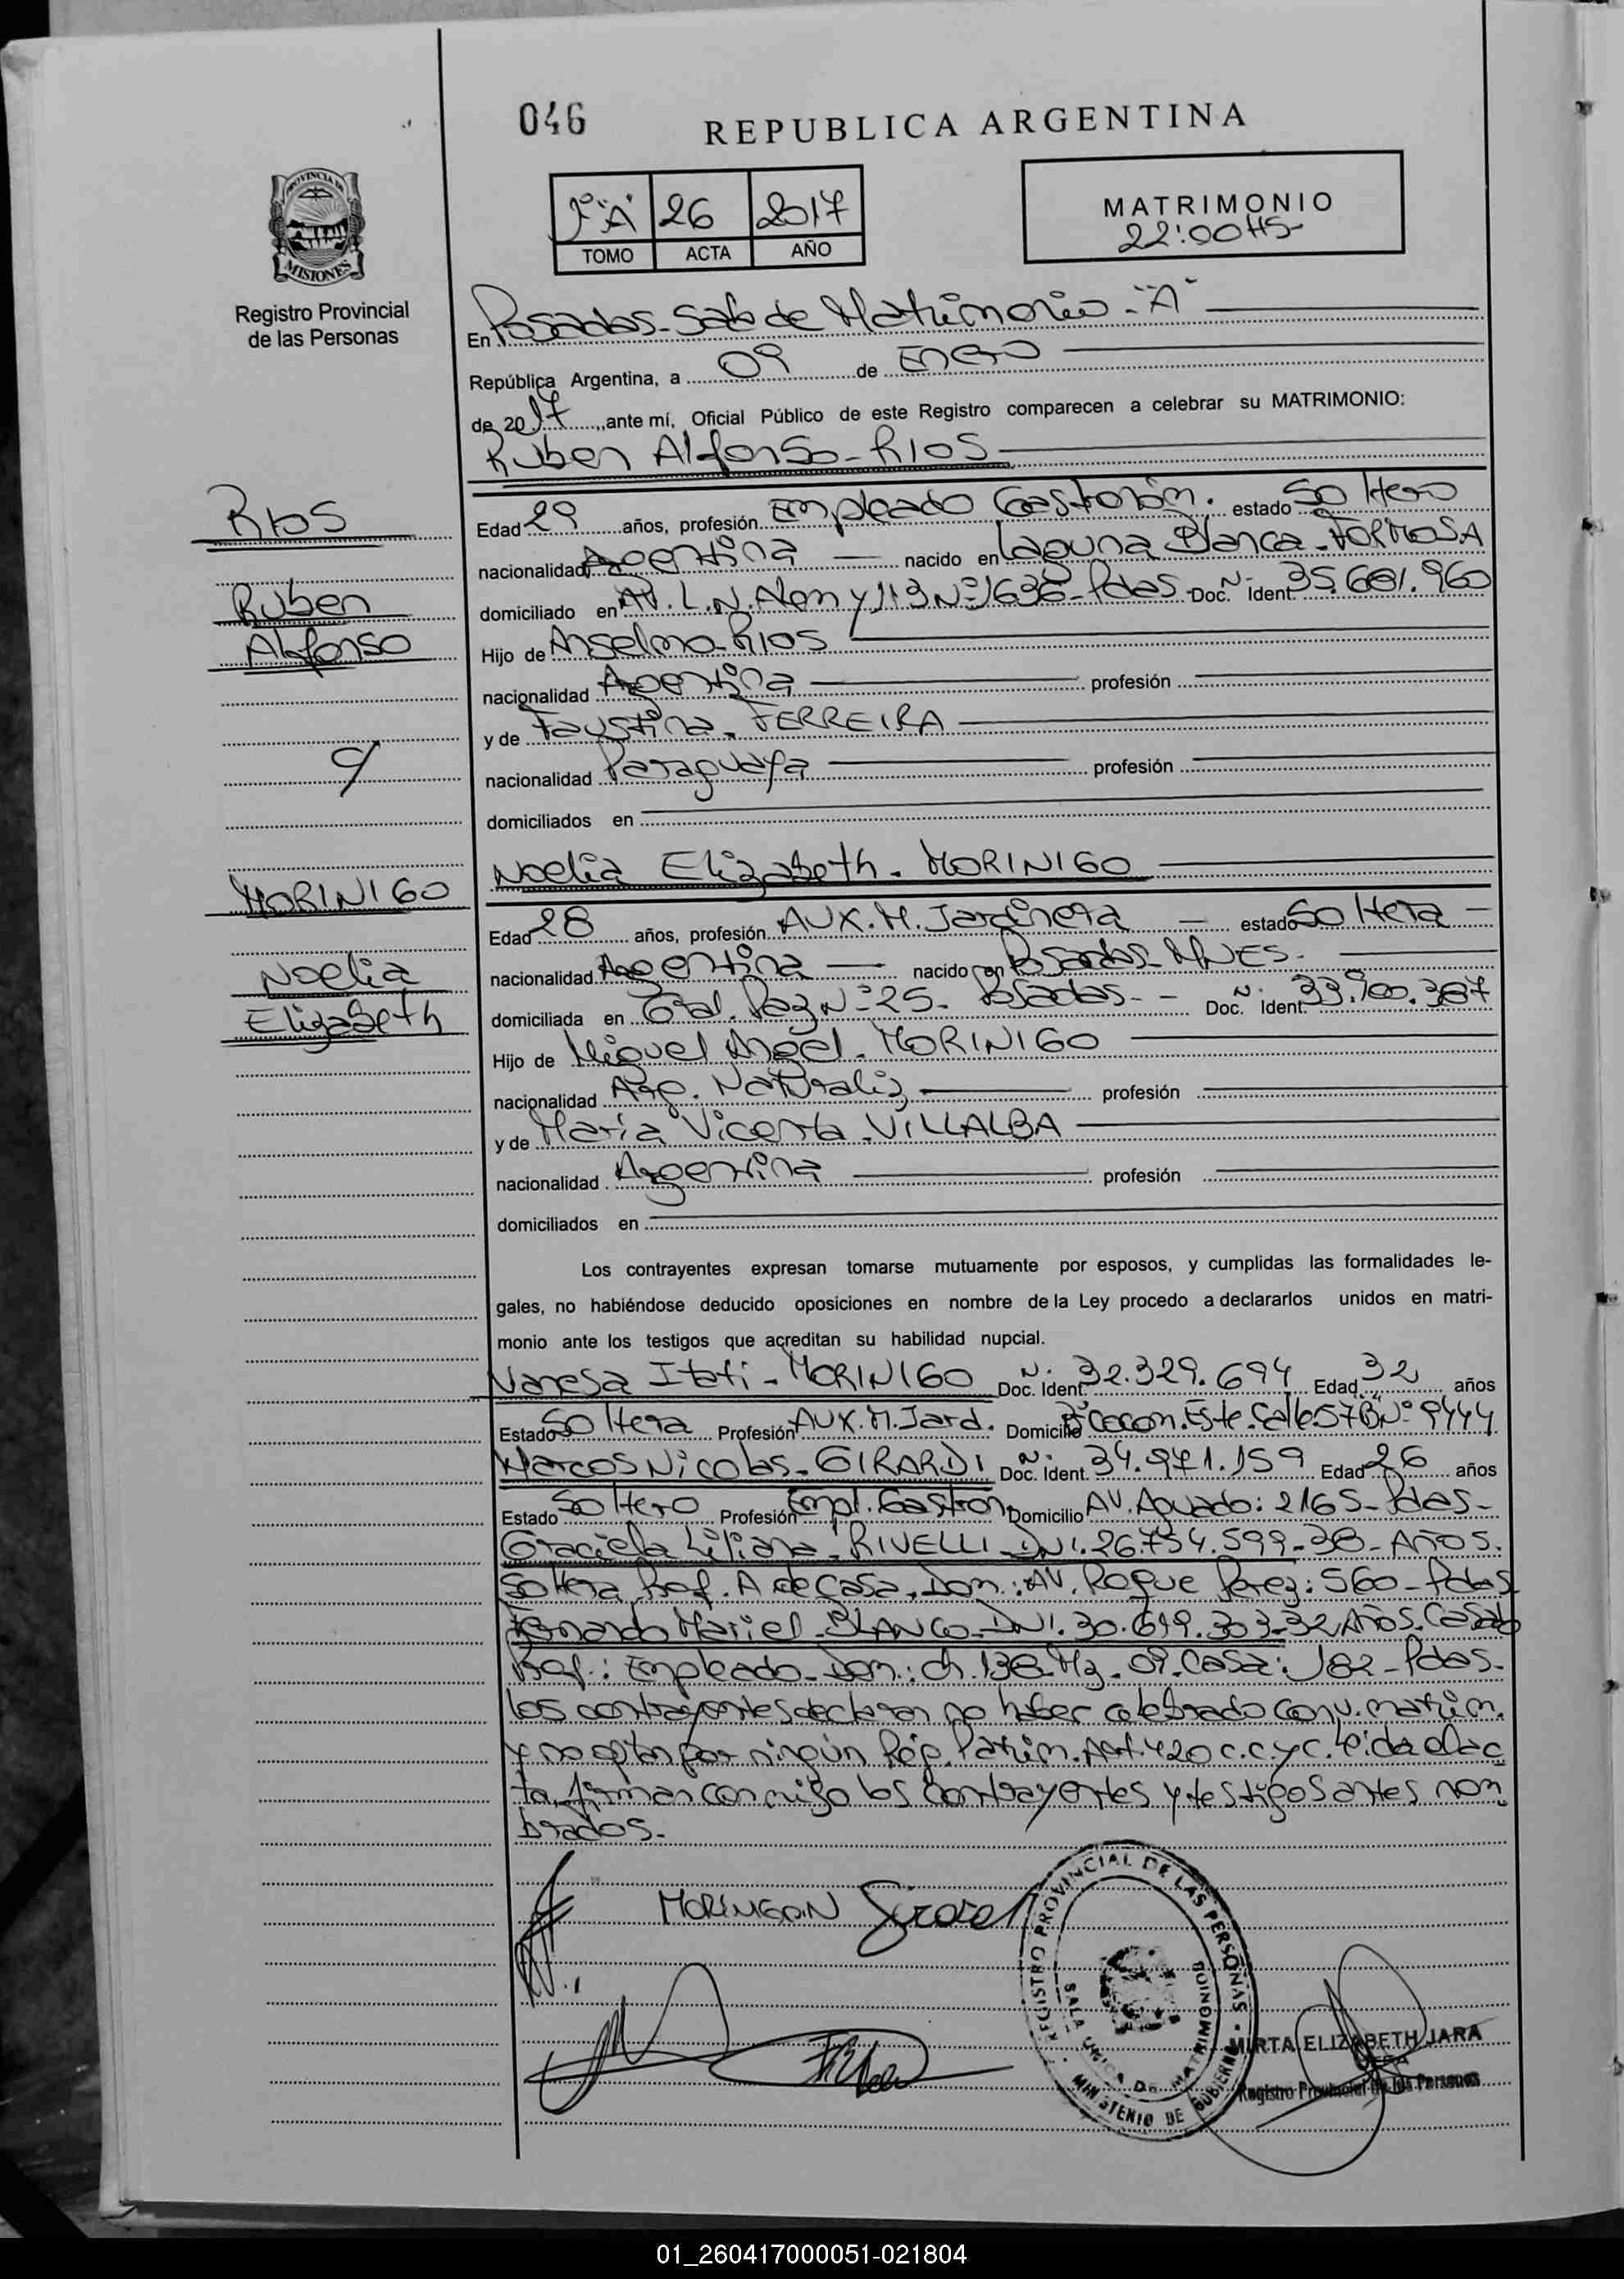 046
REPUBLICA ARGENTINA
PROVINCIA DE
MISIONES
Registro Provincial
de las Personas
1º "A" 26 2017
TOMO ACTA AÑO
MATRIMONIO
22:00 HS-
En Posadas-Sala de Matrimonio-"A"
República Argentina, a 09 de Enero
de 2017, ante mí, Oficial Público de este Registro comparecen a celebrar su MATRIMONIO:
Ruben Alfonso-RIOS
RIOS
Ruben
Alfonso
c/
MORINIGO
Noelia
Elizabeth
Edad 29 años, profesión Empleado Gastronóm. estado Soltero
nacionalidad Argentina nacido en Laguna Blanca-FORMOSA
domiciliado en AV. L.N. Alem y 113 Nº 1636-Pdas. Doc. Ident. Nº 35.681.960
Hijo de Anselmo RIOS
nacionalidad Argentina profesión
y de Faustina. FERREIRA
nacionalidad Paraguaya profesión
domiciliados en
Noelia Elizabeth. MORINIGO
Edad 28 años, profesión AUX. M. Jardinera - estado Soltera -
nacionalidad Argentina nacido en Posadas-MNES.
domiciliada en Gral. Paz Nº 25- Posadas-- Doc. Ident. Nº 33.900.387
Hijo de Miguel Angel. MORINIGO
nacionalidad Arg. Naturaliz profesión
y de María Vicenta. VILLALBA
nacionalidad Argentina profesión
domiciliados en
Los contrayentes expresan tomarse mutuamente por esposos, y cumplidas las formalidades le-
gales, no habiéndose deducido oposiciones en nombre de la Ley procedo a declararlos unidos en matri-
monio ante los testigos que acreditan su habilidad nupcial.
Vanesa Itati-MORINIGO Doc. Ident. Nº 32.329.694 Edad 32 años
Estado Soltera Profesión AUX. M. Jard. Domicilio Bº Cocom. Este. Calle 57B Nº 9444
Marcos Nicolas-GIRARDI Doc. Ident. Nº 34.971.159 Edad 26 años
Estado Soltero Profesión Empl. Gastron Domicilio AV. Aguado: 2165-Pdas-
Graciela Liliana-RIVELLI-DNI. 26.754.599-38-AÑOS.
Soltera Prof. A de Casa, Dom.: AV. Roque Perez: 560-Pdas
Fernando Mariel-BLANCO-DNI. 30.679.303-32 AÑOS. Casado
Prof.: Empleado-Dom.: ch. 138-Mz-09-Casa: 182-Pdas-
los contrayentes declaran no haber celebrado conv. matrim.
y no optan por ningún Rég. Patrim. Art. 420 C.C.yC. leida el ac
ta, firman conmigo los contrayentes y testigos antes nom
brados.-
MORINIGO N Girardi
REGISTRO PROVINCIAL DE LAS PERSONAS
SALA UNICA DE MATRIMONIOS
MINISTERIO DE GOBIERNO
MIRTA ELIZABETH JARA
Registro Provincial de las Personas
01_260417000051-021804